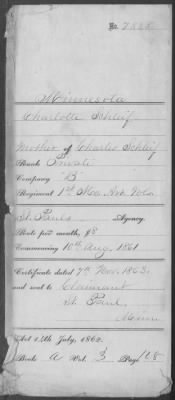 No. 7828
Minnesota
Charlotte Schleif
Mother of Charles Schleif
Rank Private
Company "B"
Regiment 1st Vols
St. Pauls Agency.
Rate per month, $8
Commencing 10th Aug. 1861
Certificate dated 7th Nov. 1863.
and sent to Claimant
St. Paul,
Minn
Act 14th July, 1862.
Book A Vol. 3 Page 128